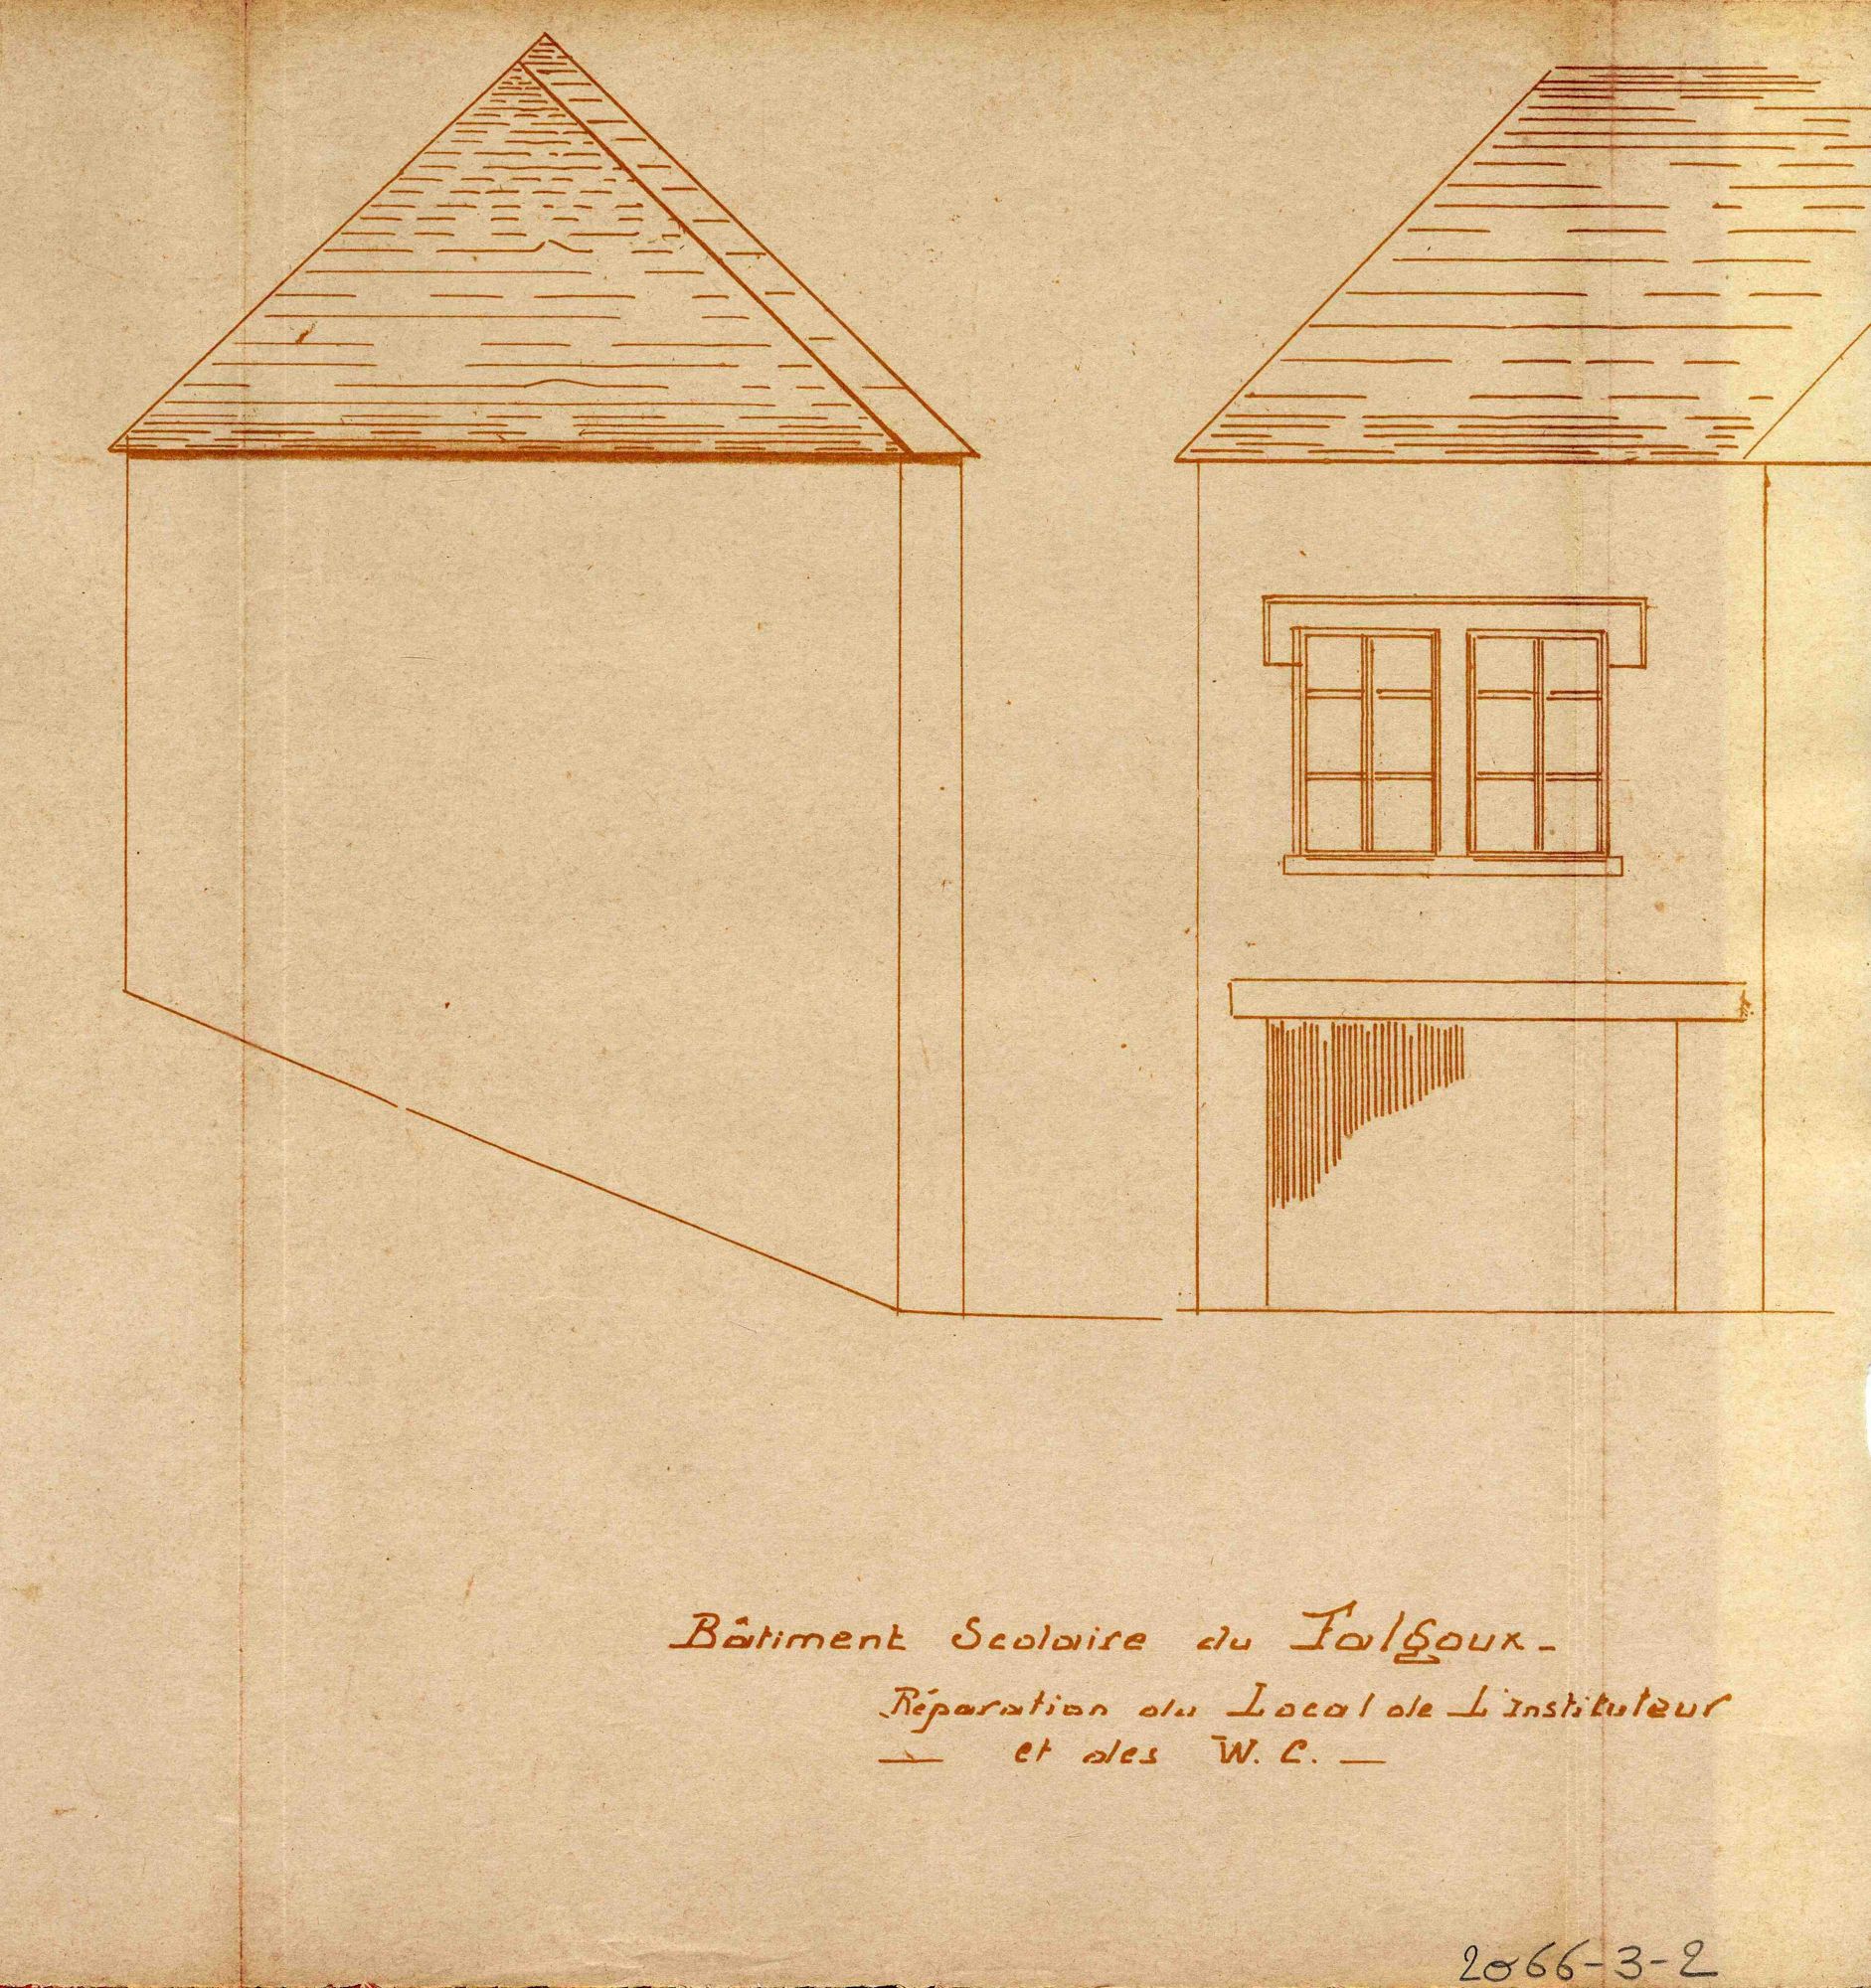 Bâtiment Scolaire du Falgoux -
Réparation du Local de L'Instituteur
— et des W. C. —
2066-3-2